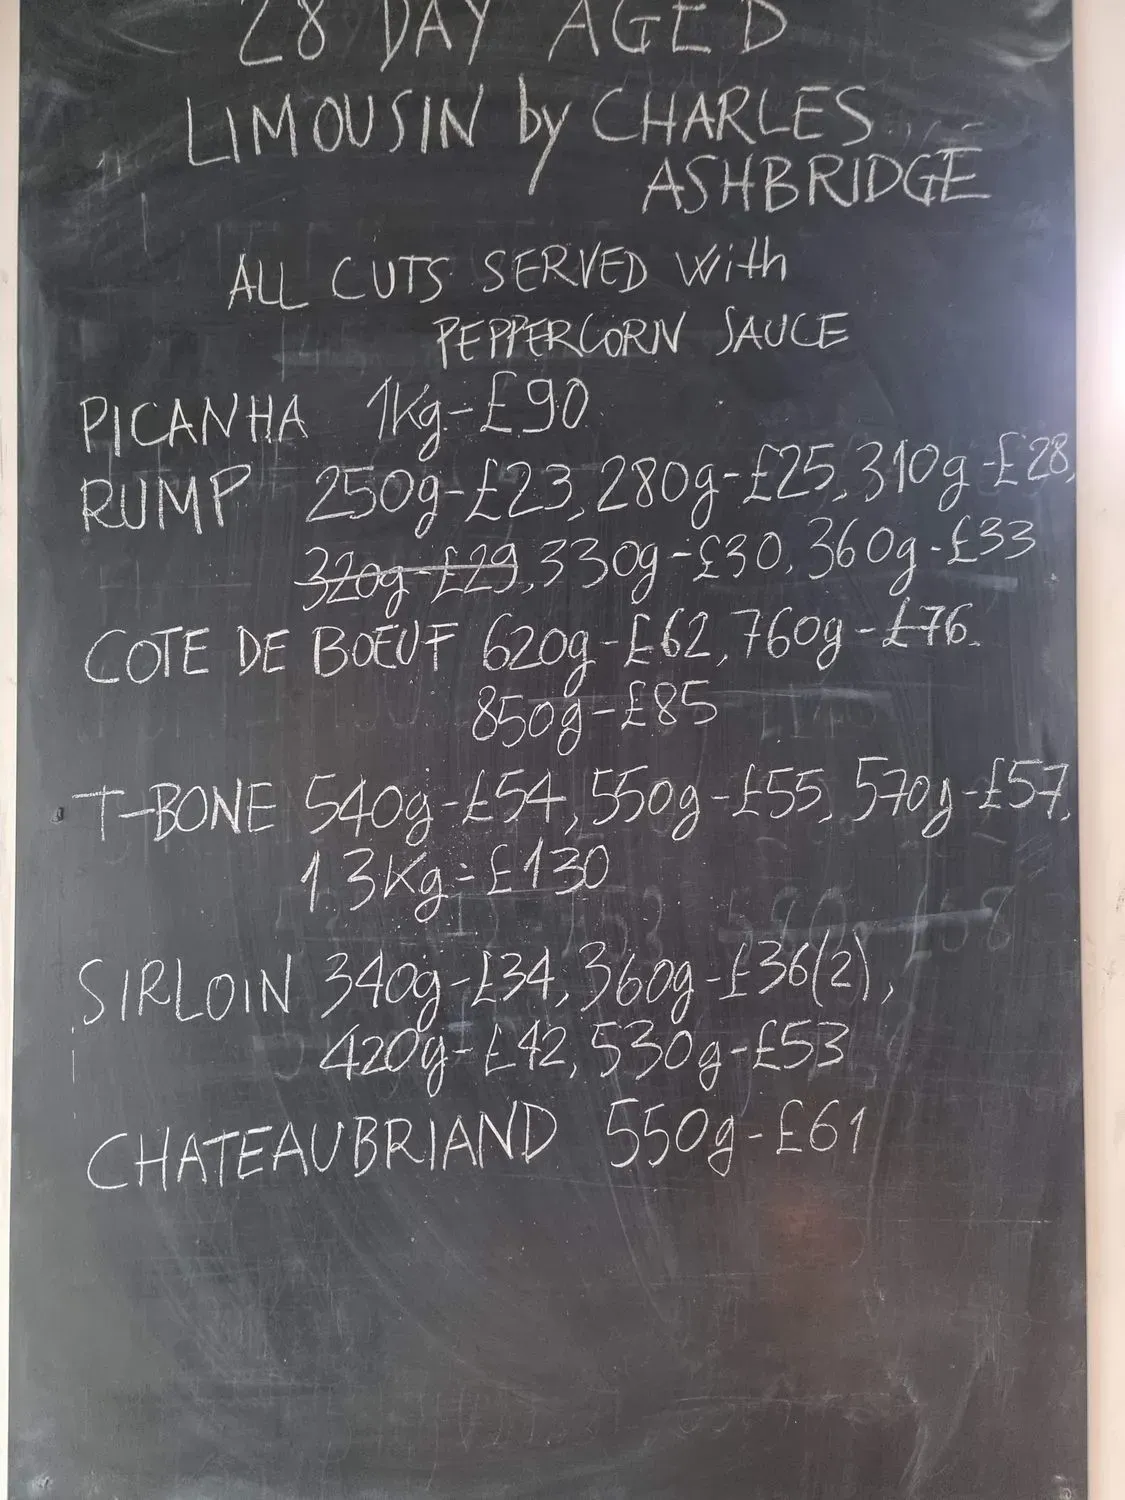 28 DAY AGED
LIMOUSIN by CHARLES
ASHBRIDGE
ALL CUTS SERVED with
PEPPERCORN SAUCE
PICANHA 1Kg-£90
RUMP 250g-£23, 280g-£25, 310g-£28,
320g-£29, 330g-£30, 360g-£33
COTE DE BOEUF 620g-£62, 760g-£76.
850g-£85
T-BONE 540g-£54, 550g-£55, 570g-£57,
1 3Kg-£130
SIRLOIN 340g-£34, 360g-£36(2),
420g-£42, 530g-£53
CHATEAUBRIAND 550g-£61